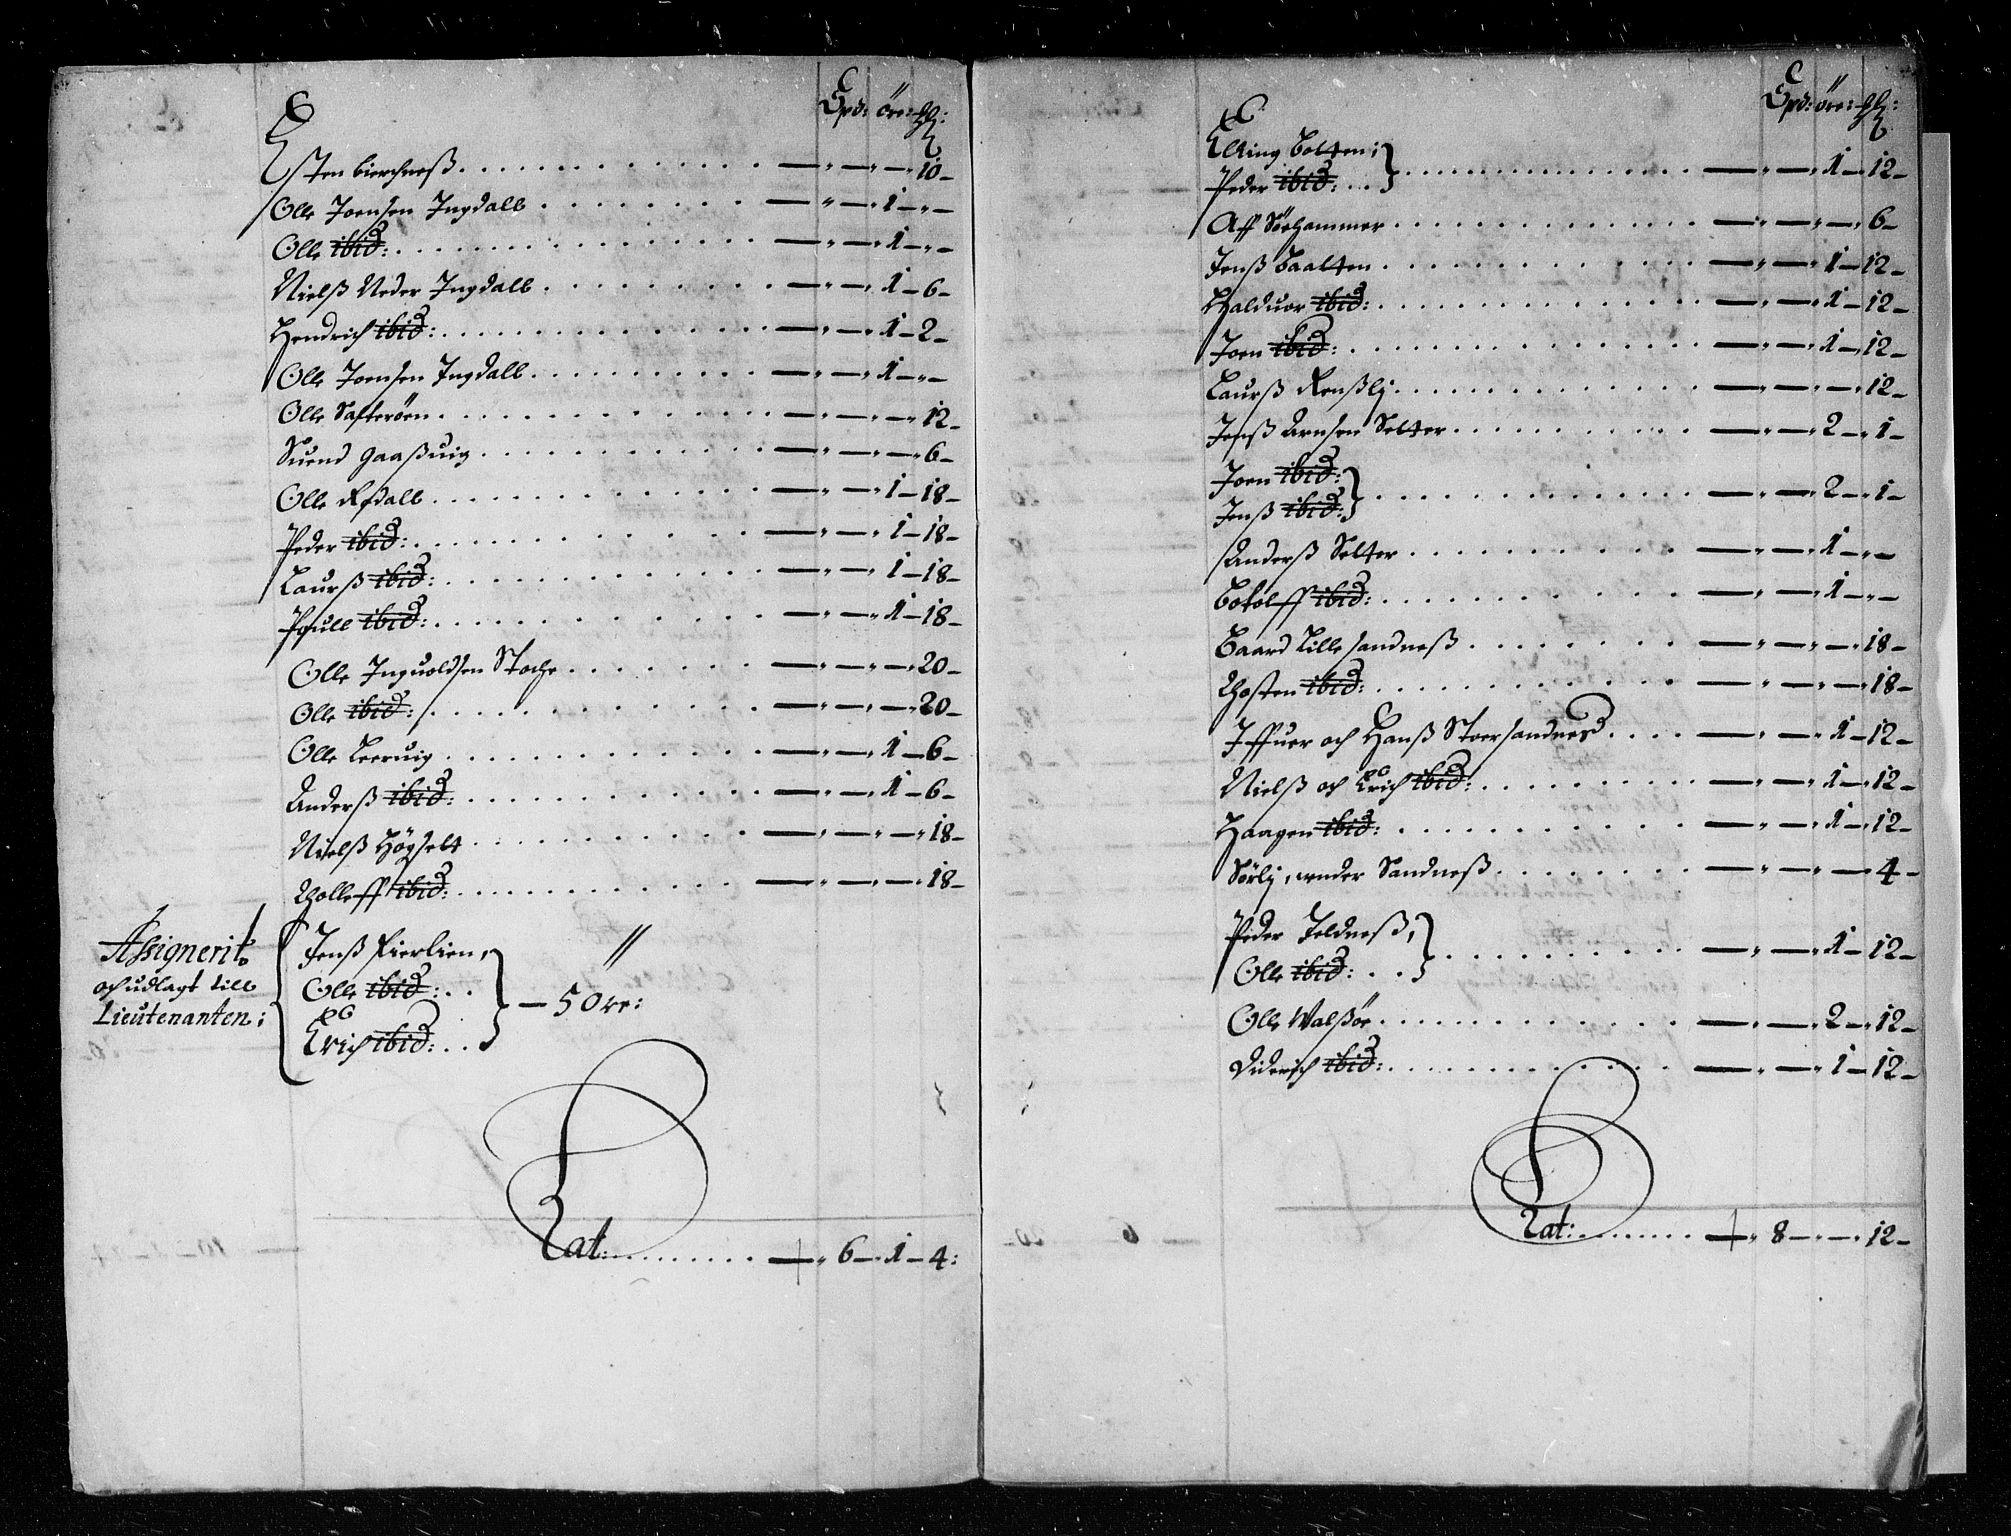 Spd: öre: ſſ:
Esten bierchneß. . . . . . . . . . — „ — „ — 10 —
Olle Joensen Ingdall . . . . . . . . — „ — 1 — „ —
Olle ibid: . . . . . . . . . . — „ — „ 1 — „ —
Nielß Neder Ingdall . . . . . . . . — „ — „ 1 — 6 —
Hendrich ibid: . . . . . . . . . . — „ — „ 1 — 2 —
Olle Joensen Ingdall . . . . . . . . — „ — „ 1 — „ —
Olle Salteröen . . . . . . . . . . — „ — „ — „ 12 —
Suend Gaaßuig . . . . . . . . . . — „ — „ — „ 6 —
Olle Refdall . . . . . . . . . . — „ — „ 1 — 18 —
Peder ibid: . . . . . . . . . . — „ — „ 1 — 18 —
Laurß ibid: . . . . . . . . . . — „ — „ 1 — 18 —
Poull ibid: . . . . . . . . . . — „ — „ 1 — 18 —
Olle Inguoldsen Stoche . . . . . . — „ — „ — „ 20 —
Olle ibid: . . . . . . . . . . — „ — „ — „ 20 —
Olle Leeruig . . . . . . . . . . — „ — „ 1 — 6 —
Anderß ibid: . . . . . . . . . . — „ — „ 1 — 6 —
Nielß Högselt . . . . . . . . . . — „ — „ — „ 18 —
Tholleff ibid: . . . . . . . . . . — „ — „ — „ 18 —
Assignerit
och udlagt till
Lieutenanten:
Jenß Fierlien,
Olle ibid: . .
Erich ibid: . .
— 5 Ore:
Lat: . . . . . . . . — „ 6 — 1 — 4:
Spd: öre: ſſ:
Elling Bolten;
Peder ibid: . . . . . . . . . . — „ — „ 1 — 12 —
Aff Sörhammer . . . . . . . . . . — „ — „ — „ 6 —
Jenß Baalten . . . . . . . . . . — „ — „ 1 — 12 —
Halduor ibid: . . . . . . . . . . — „ — „ 1 — 12 —
Joen ibid: . . . . . . . . . . — „ — „ 1 — 12 —
Laurß Renßlj . . . . . . . . . . — „ — „ — „ 12 —
Jenß Arnsen Selter . . . . . . . . — „ — „ 2 — „ 1 —
Joen ibid:
Jenß ibid: . . . . . . . . . . — „ — „ 2 — „ 1 —
Anderß Selter . . . . . . . . . . — „ — „ 1 — „ —
Botolff ibid: . . . . . . . . . . — „ — „ 1 — „ —
Baard Lille sandneß . . . . . . . . — „ — „ — „ 18 —
Thosten ibid: . . . . . . . . . . — „ — „ — „ 18 —
Iffuer och Hanß Stoersandnes . . . . — „ — „ 1 — 12 —
Nielß och Erich ibid: . . . . . . . . — „ — „ 1 — 12 —
Haagen ibid: . . . . . . . . . . — „ — „ 1 — 12 —
Sörlj, under Sandneß . . . . . . . . — „ — „ — 4 —
Peder Teldneß,
Olle ibid: . . . . . . . . . . — „ — „ 1 — 12 —
Olle Walßöe . . . . . . . . . . — „ — „ 2 — „ 12 —
Diderich ibid: . . . . . . . . . . — „ — „ 1 — 12 —
Lat: . . . . . . . . — „ 8 — „ — „ 12 —